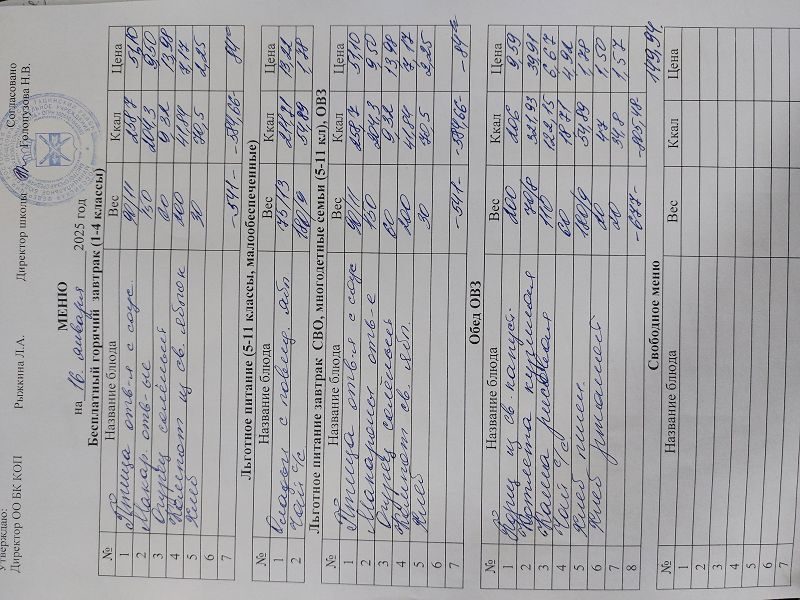 Утверждаю:
Директор ОО БК КОП Рыжкина Л.А. Директор школы Согласовано Голопузова Н.В.
МЕНЮ
на 16 января 2025 год
Бесплатный горячий завтрак (1-4 классы)
№ Название блюда Вес Ккал Цена
1 Птица отв-я с соус. 90/11 258,7 51,10
2 Макар. отв-ые 150 204,3 9,50
3 Огурец солёный 60 9,32 13,98
4 Компот из св. яблок 200 41,84 7,17
5 Хлеб 30 70,5 2,25
6
7 -541- -584,66- -84=
Льготное питание (5-11 классы, малообеспеченные)
№ Название блюда Вес Ккал Цена
1 с повид. ябл 75/13 13,22
2 Чай с/с 180/9 54,89 1,78
Льготное питание завтрак СВО, многодетные семьи (5-11 кл), ОВЗ
№ Название блюда Вес Ккал Цена
1 Птица отв-я с соус 90/11 258,7 51,10
2 Макароны отв-е 150 204,3 9,50
3 Огурец солёный 60 9,32 13,98
4 Компот св. ябл. 200 41,84 7,17
5 Хлеб 30 70,5 2,25
6
7 -541- -584,66- -84=
Обед ОВЗ
№ Название блюда Вес Ккал Цена
1 из св. капуст. 200 206 9,59
2 Котлета куриная 70/8 321,93 39,91
3 Каша рисовая 110 122,15 6,67
4 60 18,71 4,92
5 Чай с/с 180/9 54,89 1,78
6 Хлеб пшен. 20 47 1,50
7 Хлеб ржаной 20 34,8 1,57
8 -677- -805,48-
149,94.
Свободное меню
№ Название блюда Вес Ккал Цена
1
2
3
4
5
6
7